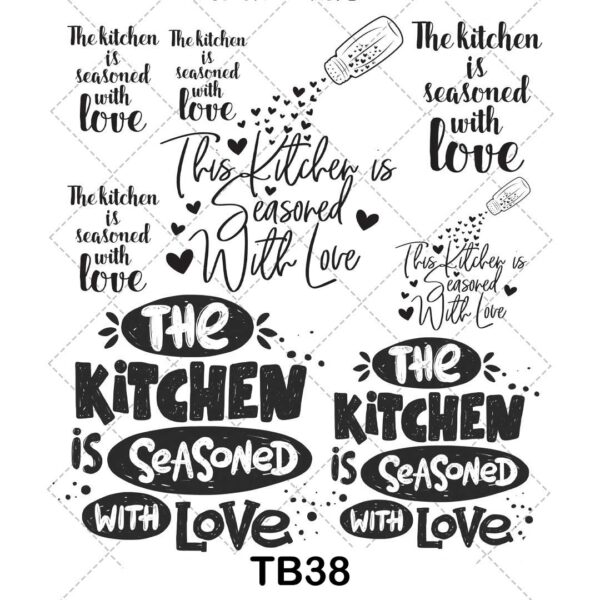 The kitchen
is
seasoned
with
love
The kitchen
is
seasoned
with
love
The kitchen
is
seasoned
with
love
This Kitchen is
Seasoned
With Love
The kitchen
is
seasoned
with
love
This Kitchen is
Seasoned
With Love
THe
KiTCHEN
iS
SeASONeD
WiTH LOVe
THe
KiTCHEN
iS
SeASONeD
WiTH LOVe
TB38